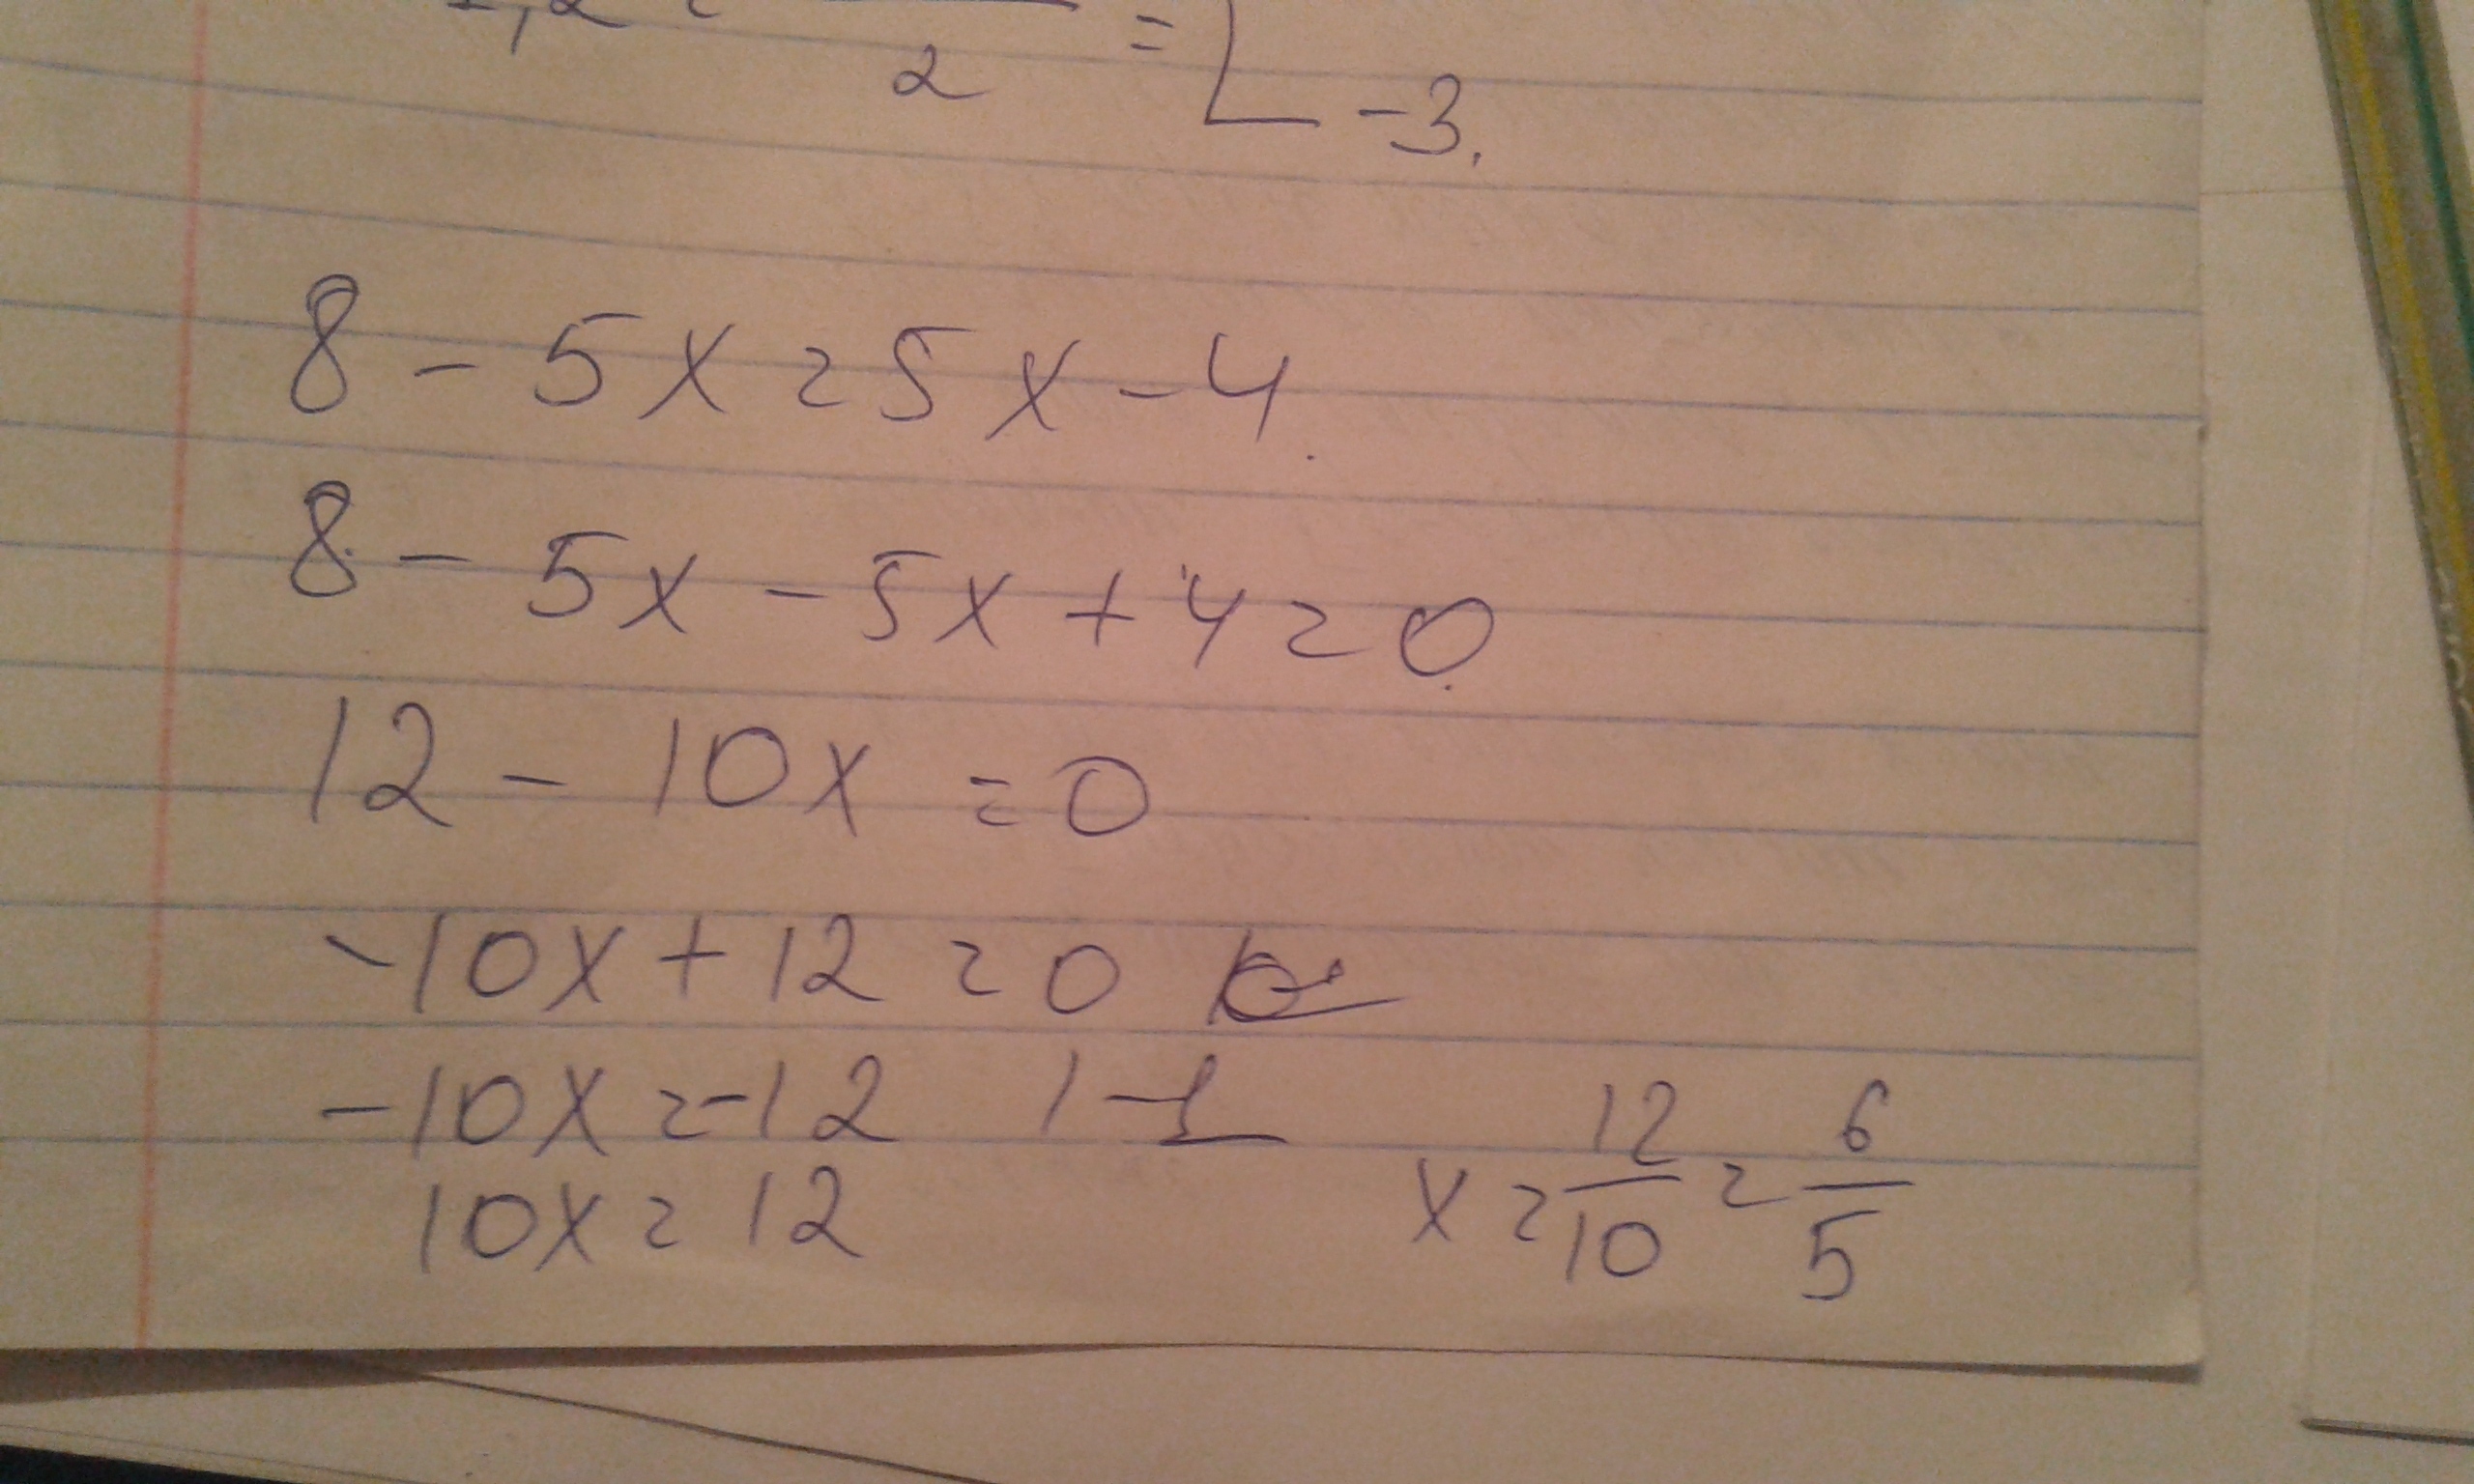 1,2 = 2 = -3.
8 - 5x = 5x - 4.
8 - 5x - 5x + 4 = 0.
12 - 10x = 0
-10x + 12 = 0
-10x = -12 | -1
10x = 12 x = 12/10 = 6/5